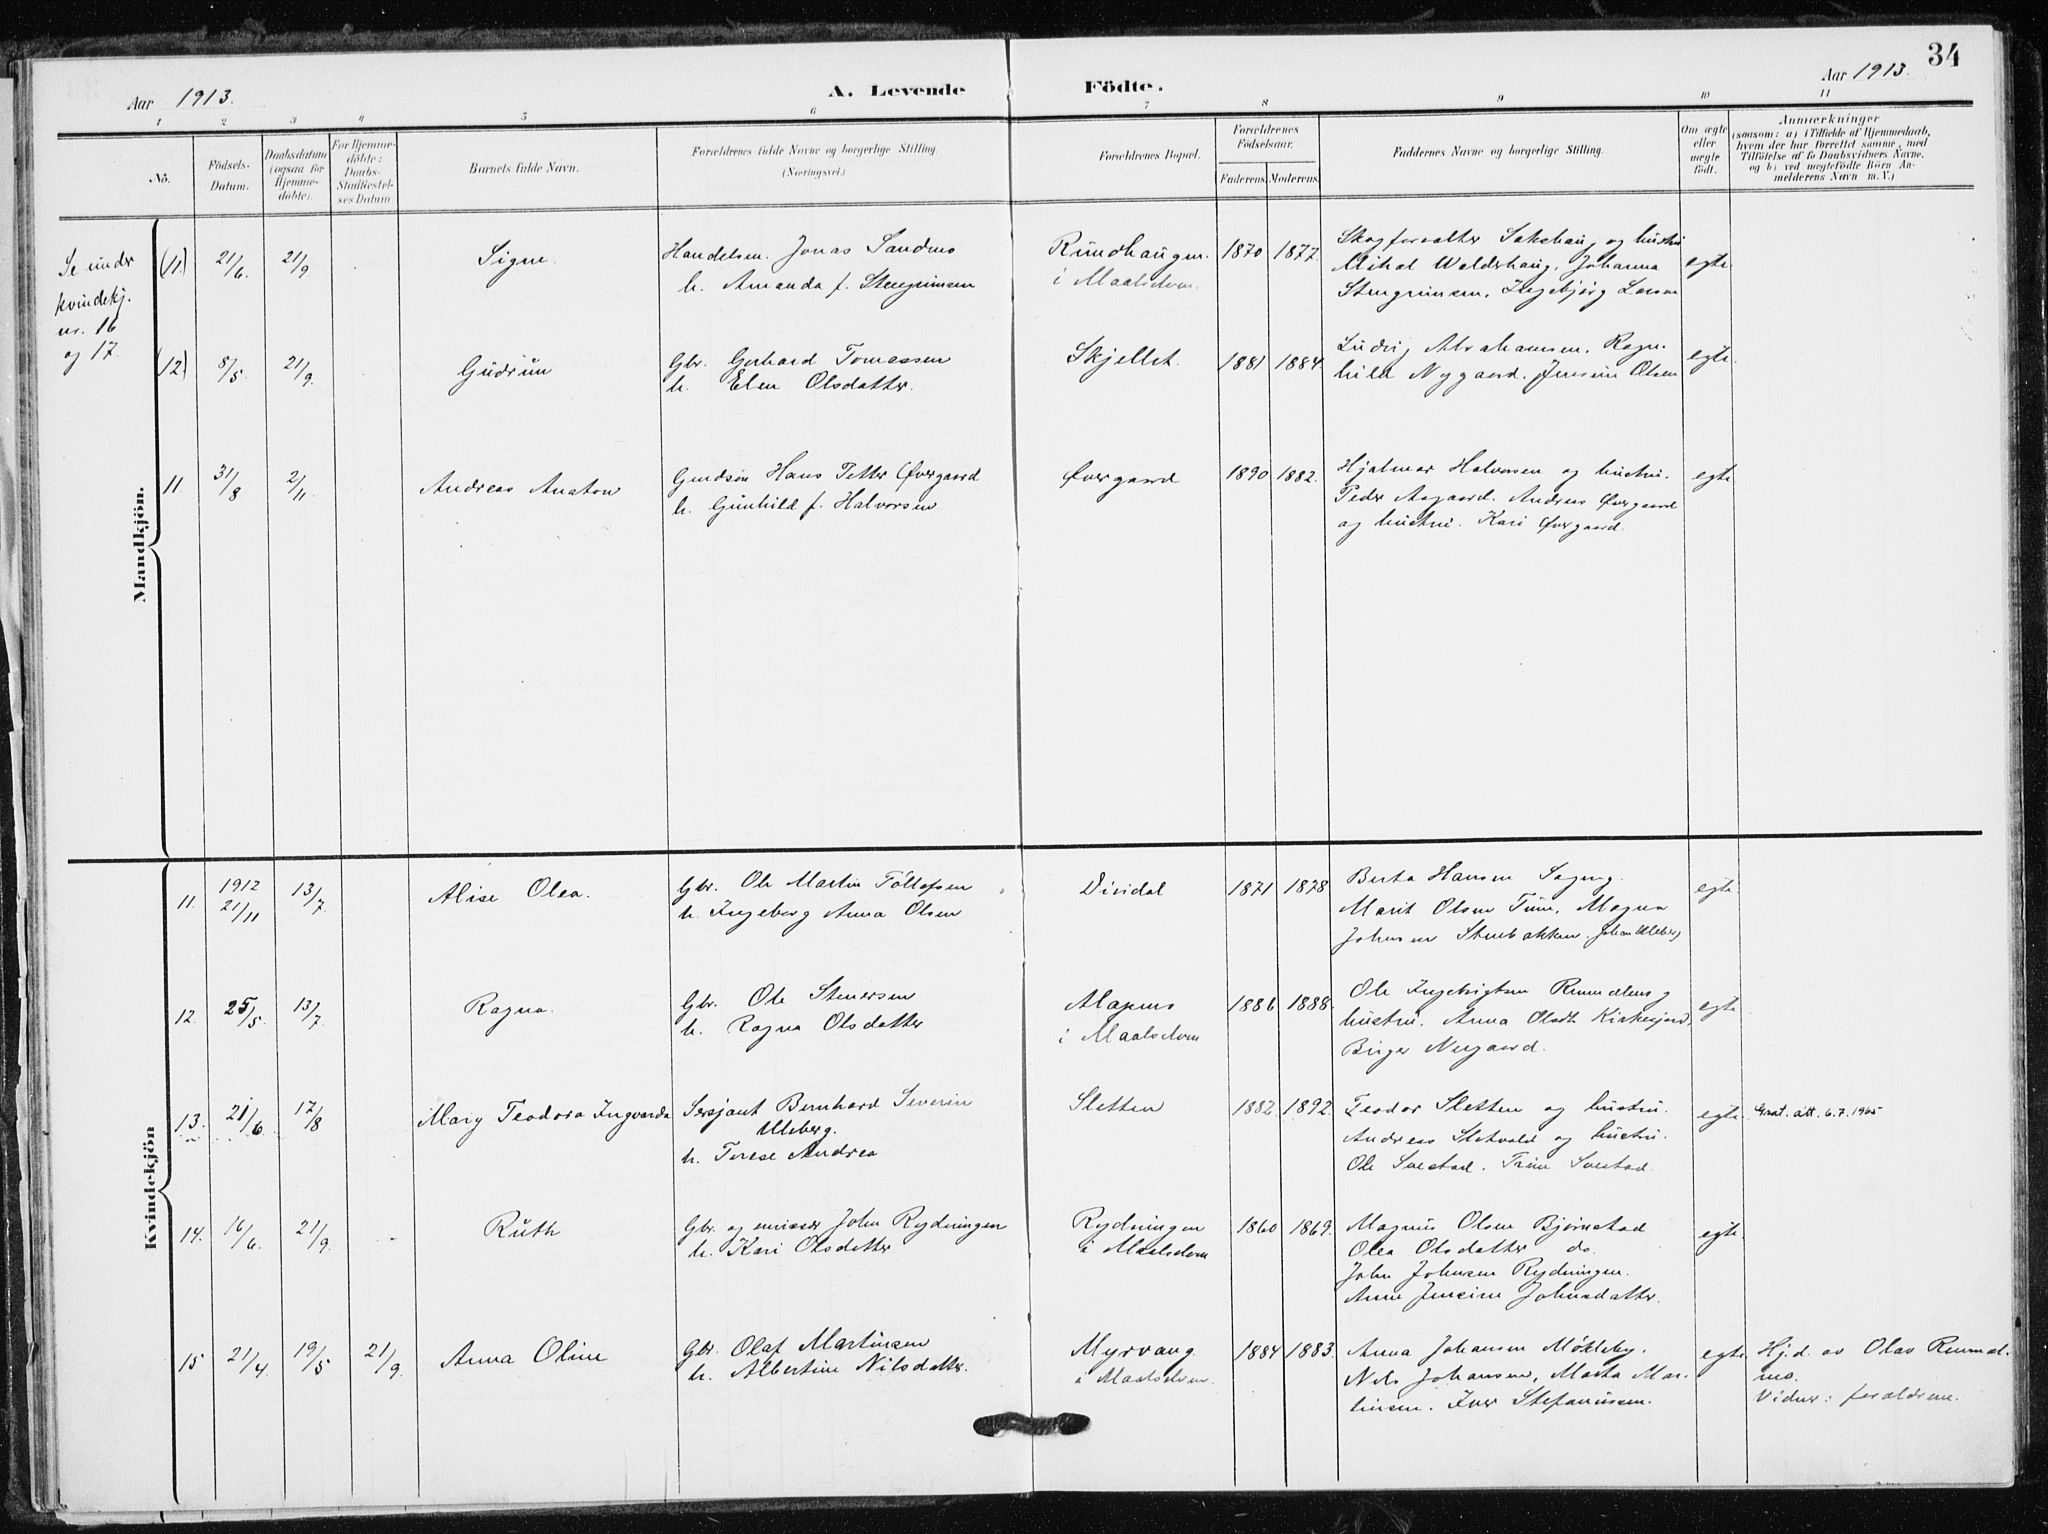 34
Aar 1913. A. Levende Födte. Aar 1913.
1 2 3 4 5 6 7 8 9 10 11
Nö.
Födsels-
Datum.
Daabsdatum
(ogsaa for
Hjemme-
döbte).
For Hjemme-
döbte:
Daabs-
Stadfæstel-
ses Datum
Barnets fulde Navn.
Forældrenes fulde Navne og borgerlige Stilling.
(Næringsvei.)
Forældrenes Bopæl.
Forældrenes
Födselsaar.
Faderens. Moderens.
Faddernes Navne og borgerlige Stilling.
Om ægte
eller
uægte
födt.
Anmærkninger
(saasom: a) i Tilfælde af Hjemmedaab,
hvem der har forrettet samme, med
Tilföielse af to Daabsvidners Navne,
og b) ved uægtefödte Börn An-
melderens Navn m. V.)
Se under
kvindekj.
nr. 16
og 17.
Mandkjön.
(11.) 21/6. 21/9 Signe. Handelsm. Jonas Sandmo
h. Amanda f. Stengrimsen
Rundhaugen.
i Maalselven.
1870 1877. Skogforvalter Sakshaug og hustru
Mikal Walderhaug, Johanna
Stengrimsen, Ingebjørg Larsen
egte.
(12) 8/5. 21/9. Gudrun Gbr. Gerhard Tomassen
h. Elen Olsdatter.
Skjellet. 1881 1884. Ludvig Abrahamsen. Ragn-
hild Nygaard. Jensine Olsen
egte.
11. 31/8 2/11. Andreas Anaton Gaardsøn Hans Petter Øvergaard
h. Gunhild f. Halvorsen
Øvergaard 1890 1882. Hjalmar Halvorsen og hustru.
Peder Aagaard. Andreas Øvergaard
og hustru. Kari Øvergaard.
egte.
Kvindekjön
11. 1912
21/11 13/7 Alise Olea. Gbr. Ole Martin Tollefsen
h. Ingeborg Anna Olsen
Dividal 1871 1878 Berta Hansen
Marit Olsen Magna
Johnsen Stenbakken. Johan Uleberg
egte.
12. 25/5. 13/7 Ragna. Gbr. Ole Stenersen
h. Ragna Olsdatter
Alapmo
i Maalselven
1886 1888. Ole Ingebrigtsen Rundhaug
hustru. Anna Olsdtr Kirkesjord,
Birger Nergaard.
egte.
13. 21/6 17/8 Mary Teodora Ingvarda Sersjant Bernhard Severin
Uleberg.
h. Terese Andrea
Sletten 1882. 1892. Teodor Sletten og hustru.
Andreas Sletvold og hustru.
Ole Svestad. Trine Svestad.
egte. Grat. att. 6.7.1965
14. 16/6. 21/9. Ruth Gbr. og emissær John Rydningen
h. Kari Olsdatter
Rydningen
i Maalselven
1860 1869. Magnus Olsen Bjørnstad
Olea Olsdatter do.
John Johnsen Rydningen.
Anne Jensine Johnsdatter.
egte.
15 21/4. 19/5 21/9. Anna Oline Gbr. Olaf Martinsen
h. Albertine Nilsdatter.
Myrvang
i Maalselven.
1884 1883. Anna Johansen Møkleby.
Nils Johansen, Marta Mar-
tinsen. Iver Stefanussen.
egte. Hj.d. av Olav Rundmo.
Vidner: forældrene.